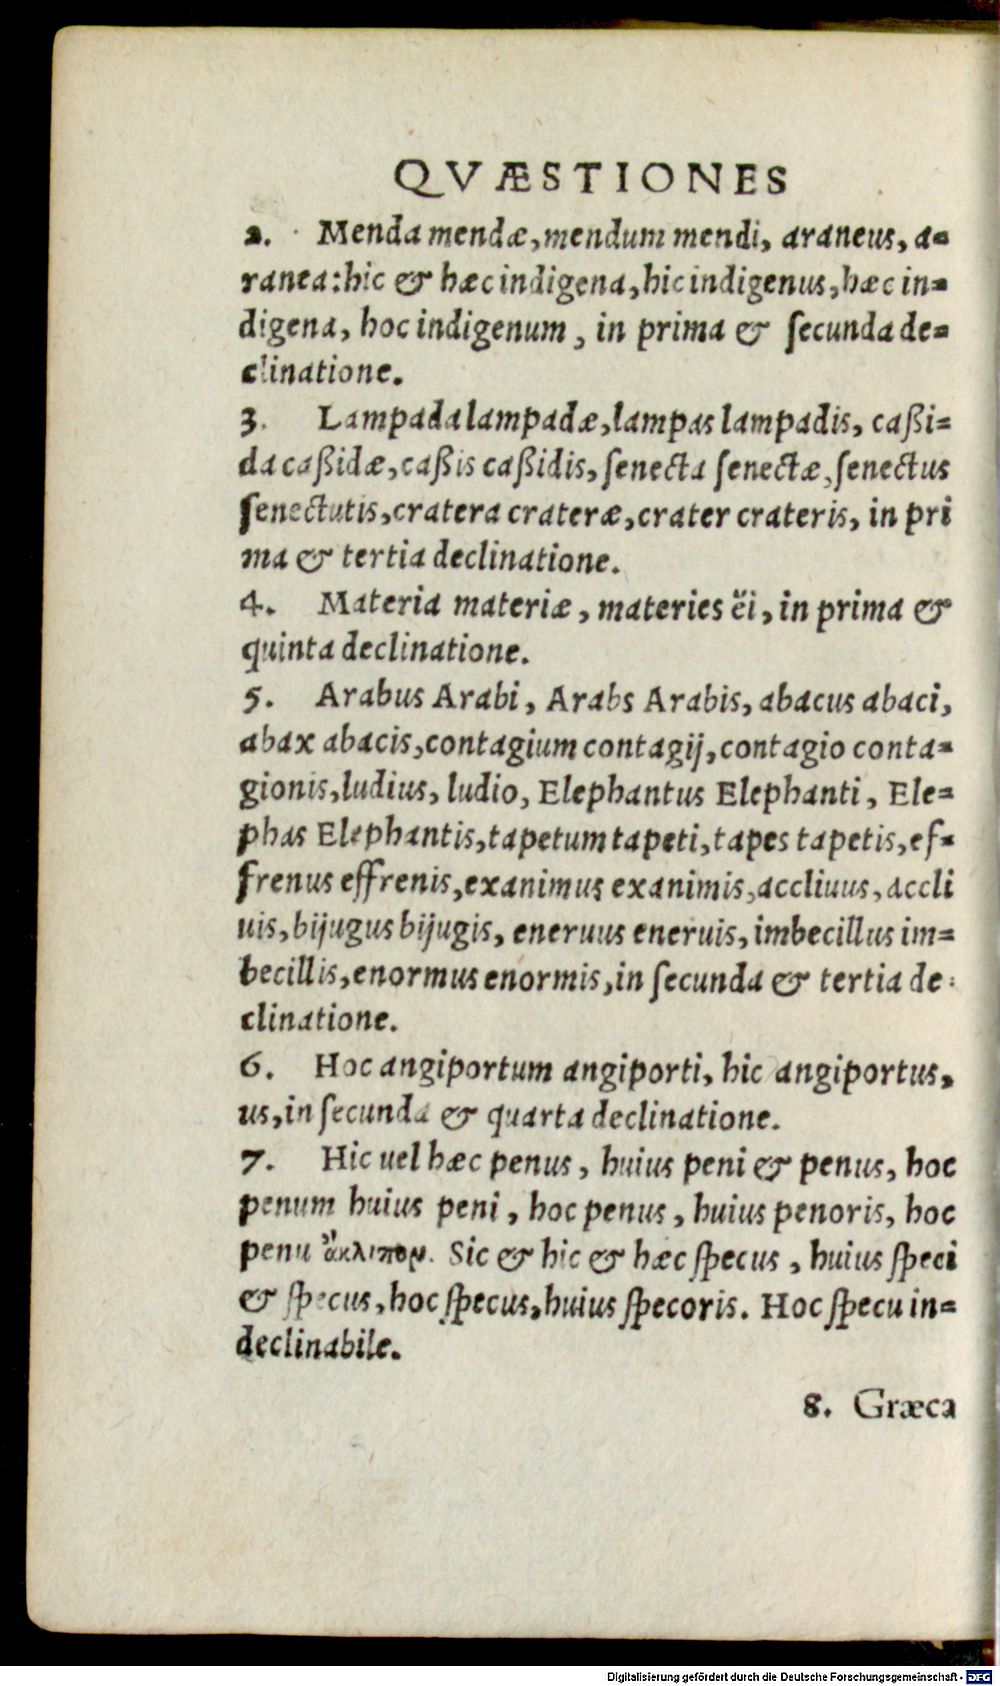 QVÆSTIONES
2. Menda mendæ, mendum mendi, araneus, a-
ranea: hic & hæc indigena, hic indigenus, hæc in-
digena, hoc indigenum, in prima & ſecunda de-
clinatione.
3. Lampada lampadæ, lampas lampadis, caßi-
da caßidæ, caßis caßidis, ſenecta ſenectæ, ſenectus
ſenectutis, cratera crateræ, crater crateris, in pri
ma & tertia declinatione.
4. Materia materiæ, materies ëi, in prima &
quinta declinatione.
5. Arabus Arabi, Arabs Arabis, abacus abaci,
abax abacis, contagium contagij, contagio conta-
gionis, ludius, ludio, Elephantus Elephanti, Ele-
phas Elephantis, tapetum tapeti, tapes tapetis, ef-
frenus effrenis, exanimus exanimis, accliuus, accli
uis, bijugus bijugis, eneruus eneruis, imbecillus im-
becillis, enormus enormis, in ſecunda & tertia de-
clinatione.
6. Hoc angiportum angiporti, hic angiportus,
us, in ſecunda & quarta declinatione.
7. Hic uel hæc penus, huius peni & penus, hoc
penum huius peni, hoc penus, huius penoris, hoc
penu ἄκλιτον. Sic & hic & hæc ſpecus, huius ſpeci
& ſpecus, hoc ſpecus, huius ſpecoris. Hoc ſpecu in-
declinabile.
8. Græca
Digitalisierung gefördert durch die Deutsche Forschungsgemeinschaft - DFG